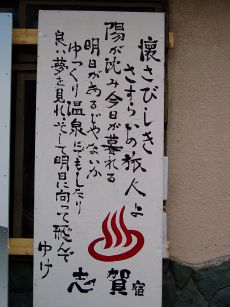 懐さびしき
さすらいの旅人よ
陽が沈み今日が暮れる
明日があるじゃないか
ゆっくり温泉にでもしたり
良い夢を見れ、そして明日に向って飛んで
ゆけ
志賀宿